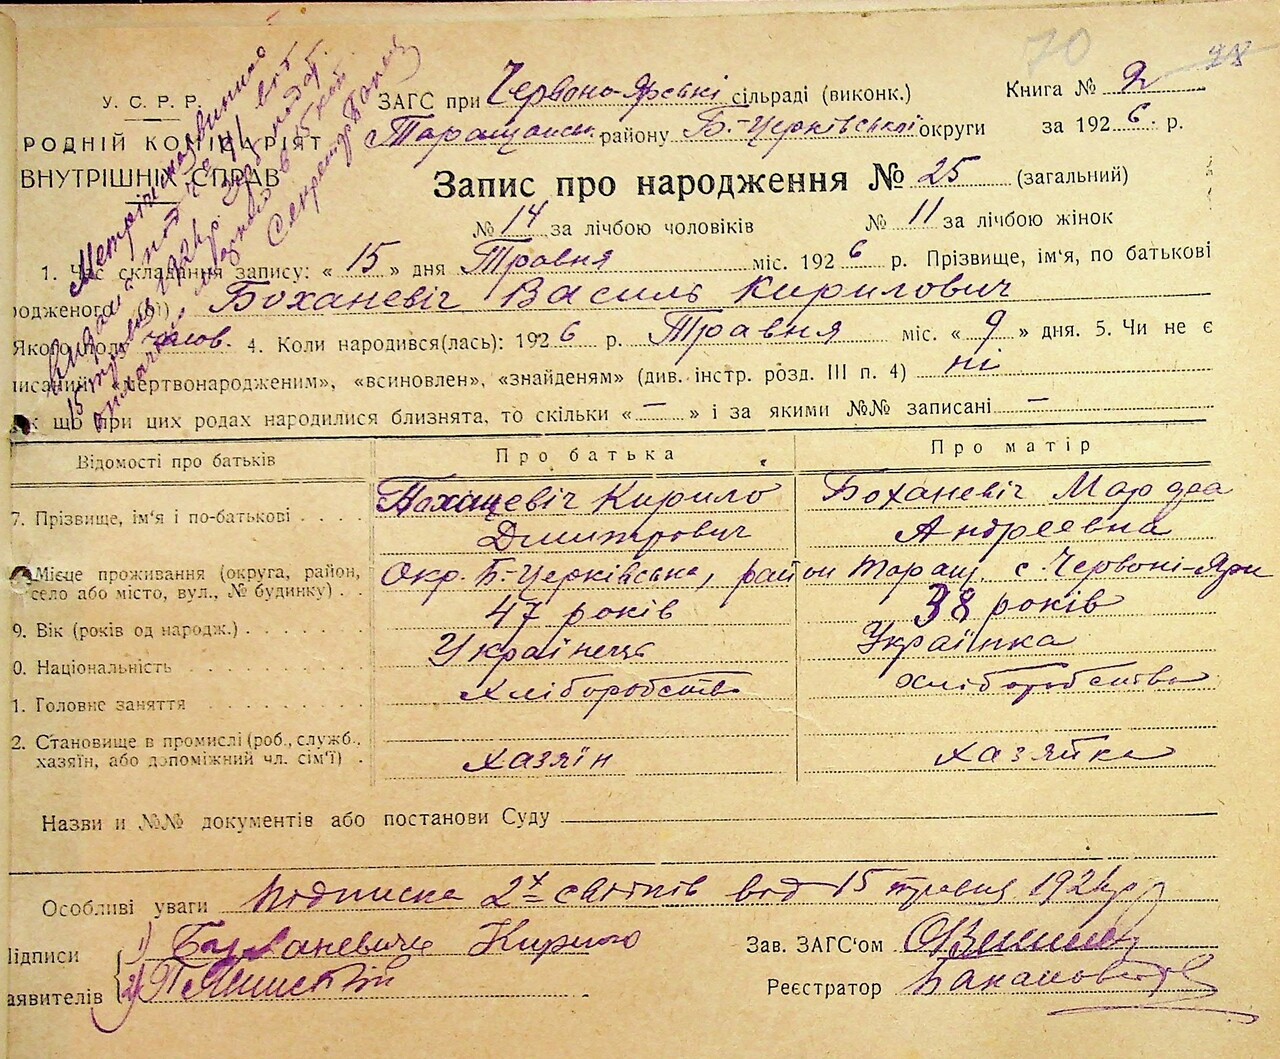 70
28
У. С. Р. Р.
РОДНІЙ КОМІСАРІЯТ
ВНУТРІШНІХ СПРАВ
ЗАГС при Червоно-Ярські сільраді (виконк.)
Книга № 2
Таращанськ. району Б.-Церківської округи
за 1926 р.
Запис про народження № 25 (загальний)
№ 14 за лічбою чоловіків
№ 11 за лічбою жінок
1. Час складання запису: « 15 » дня Травня міс. 1926 р. Прізвище, ім'я, по батькові
одженого Боханевіч Василь Кирилович
Якого полу чолов. 4. Коли народився(лась): 1926 р. Травня міс. « 9 » дня. 5. Чи не є
писаний «мертвонародженим», «всиновлен», «знайденям» (див. інстр. розд. III п. 4) ні
к що при цих родах народилися близнята, то скільки « — » і за якими №№ записані —
Відомості про батьків
Про батька
Про матір
7. Прізвище, ім'я і по-батькові
Боханевіч Кирило
Дмитрович
Боханевіч
Андреевна
Місце проживання (округа, район,
село або місто, вул., № будинку)
Окр. Б-Церківська, район Таращ. с. Червоні-Яри
9. Вік (років од народж.)
47 років
38 років
0. Національність
Українець
Українка
1. Головне заняття
Хліборобство
хліборобство
2. Становище в промислі (роб., служб.,
хазяїн, або допоміжний чл. сім'ї)
хазяїн
хазяйка
Назви и №№ документів або постанови Суду
Особливі уваги Подписка 2х свідків від 15 травня 192 р
ідписи
аявителів
1) Боханевич Кирило
2)
Зав. ЗАГС'ом
Реєстратор